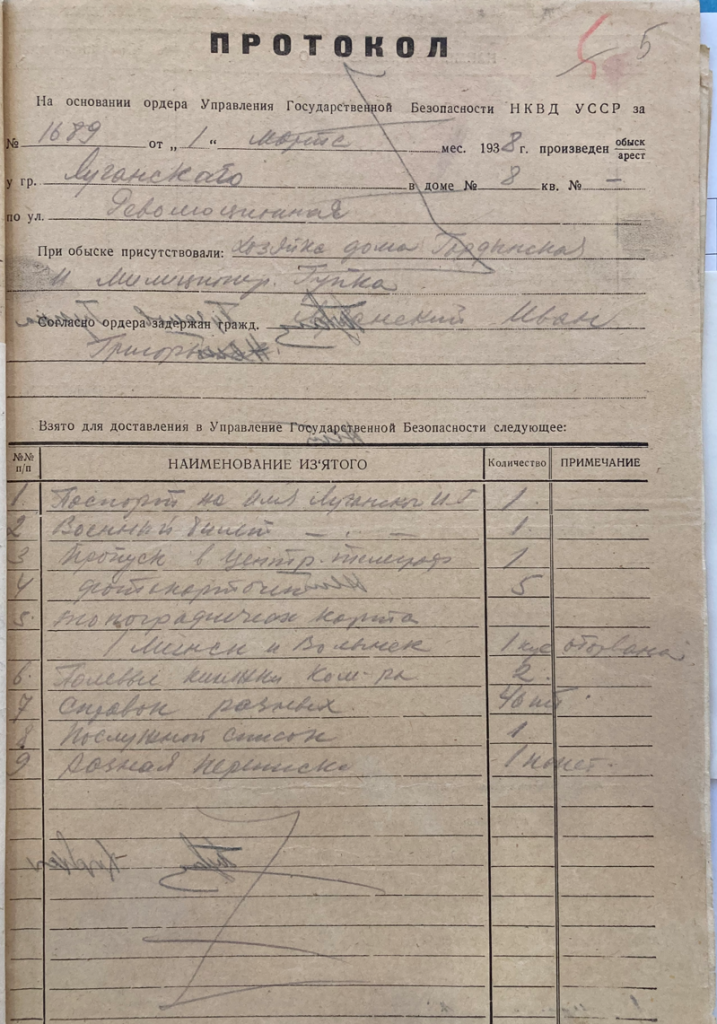 5
ПРОТОКОЛ
На основании ордера Управления Государственной Безопасности НКВД УССР за
№ 1689 от „ 1 “ марта мес. 1938 г. произведен обыск арест
у гр. Луганского в доме № 8 кв. № —
по ул. Революционная
При обыске присутствовали: хозяйка дома
и милиционер Гупка
Согласно ордера задержан гражд. Луганский Иван
Взято для доставления в Управление Государственной Безопасности следующее:
№№ п/п НАИМЕНОВАНИЕ ИЗ'ЯТОГО Количество ПРИМЕЧАНИЕ
1 Паспорт на имя Луганский И.Г 1.
2 Военный билет — . — 1.
3 Пропуск в центр. телеграф 1
4 фотокарточек 5
5. топографичная карта
Минск и 1 оторвана
6. Полевые книжки ком-ра 2.
7 Справок разных. 46 шт
8 Послужной список 1
9 разная переписка 1 пакет.